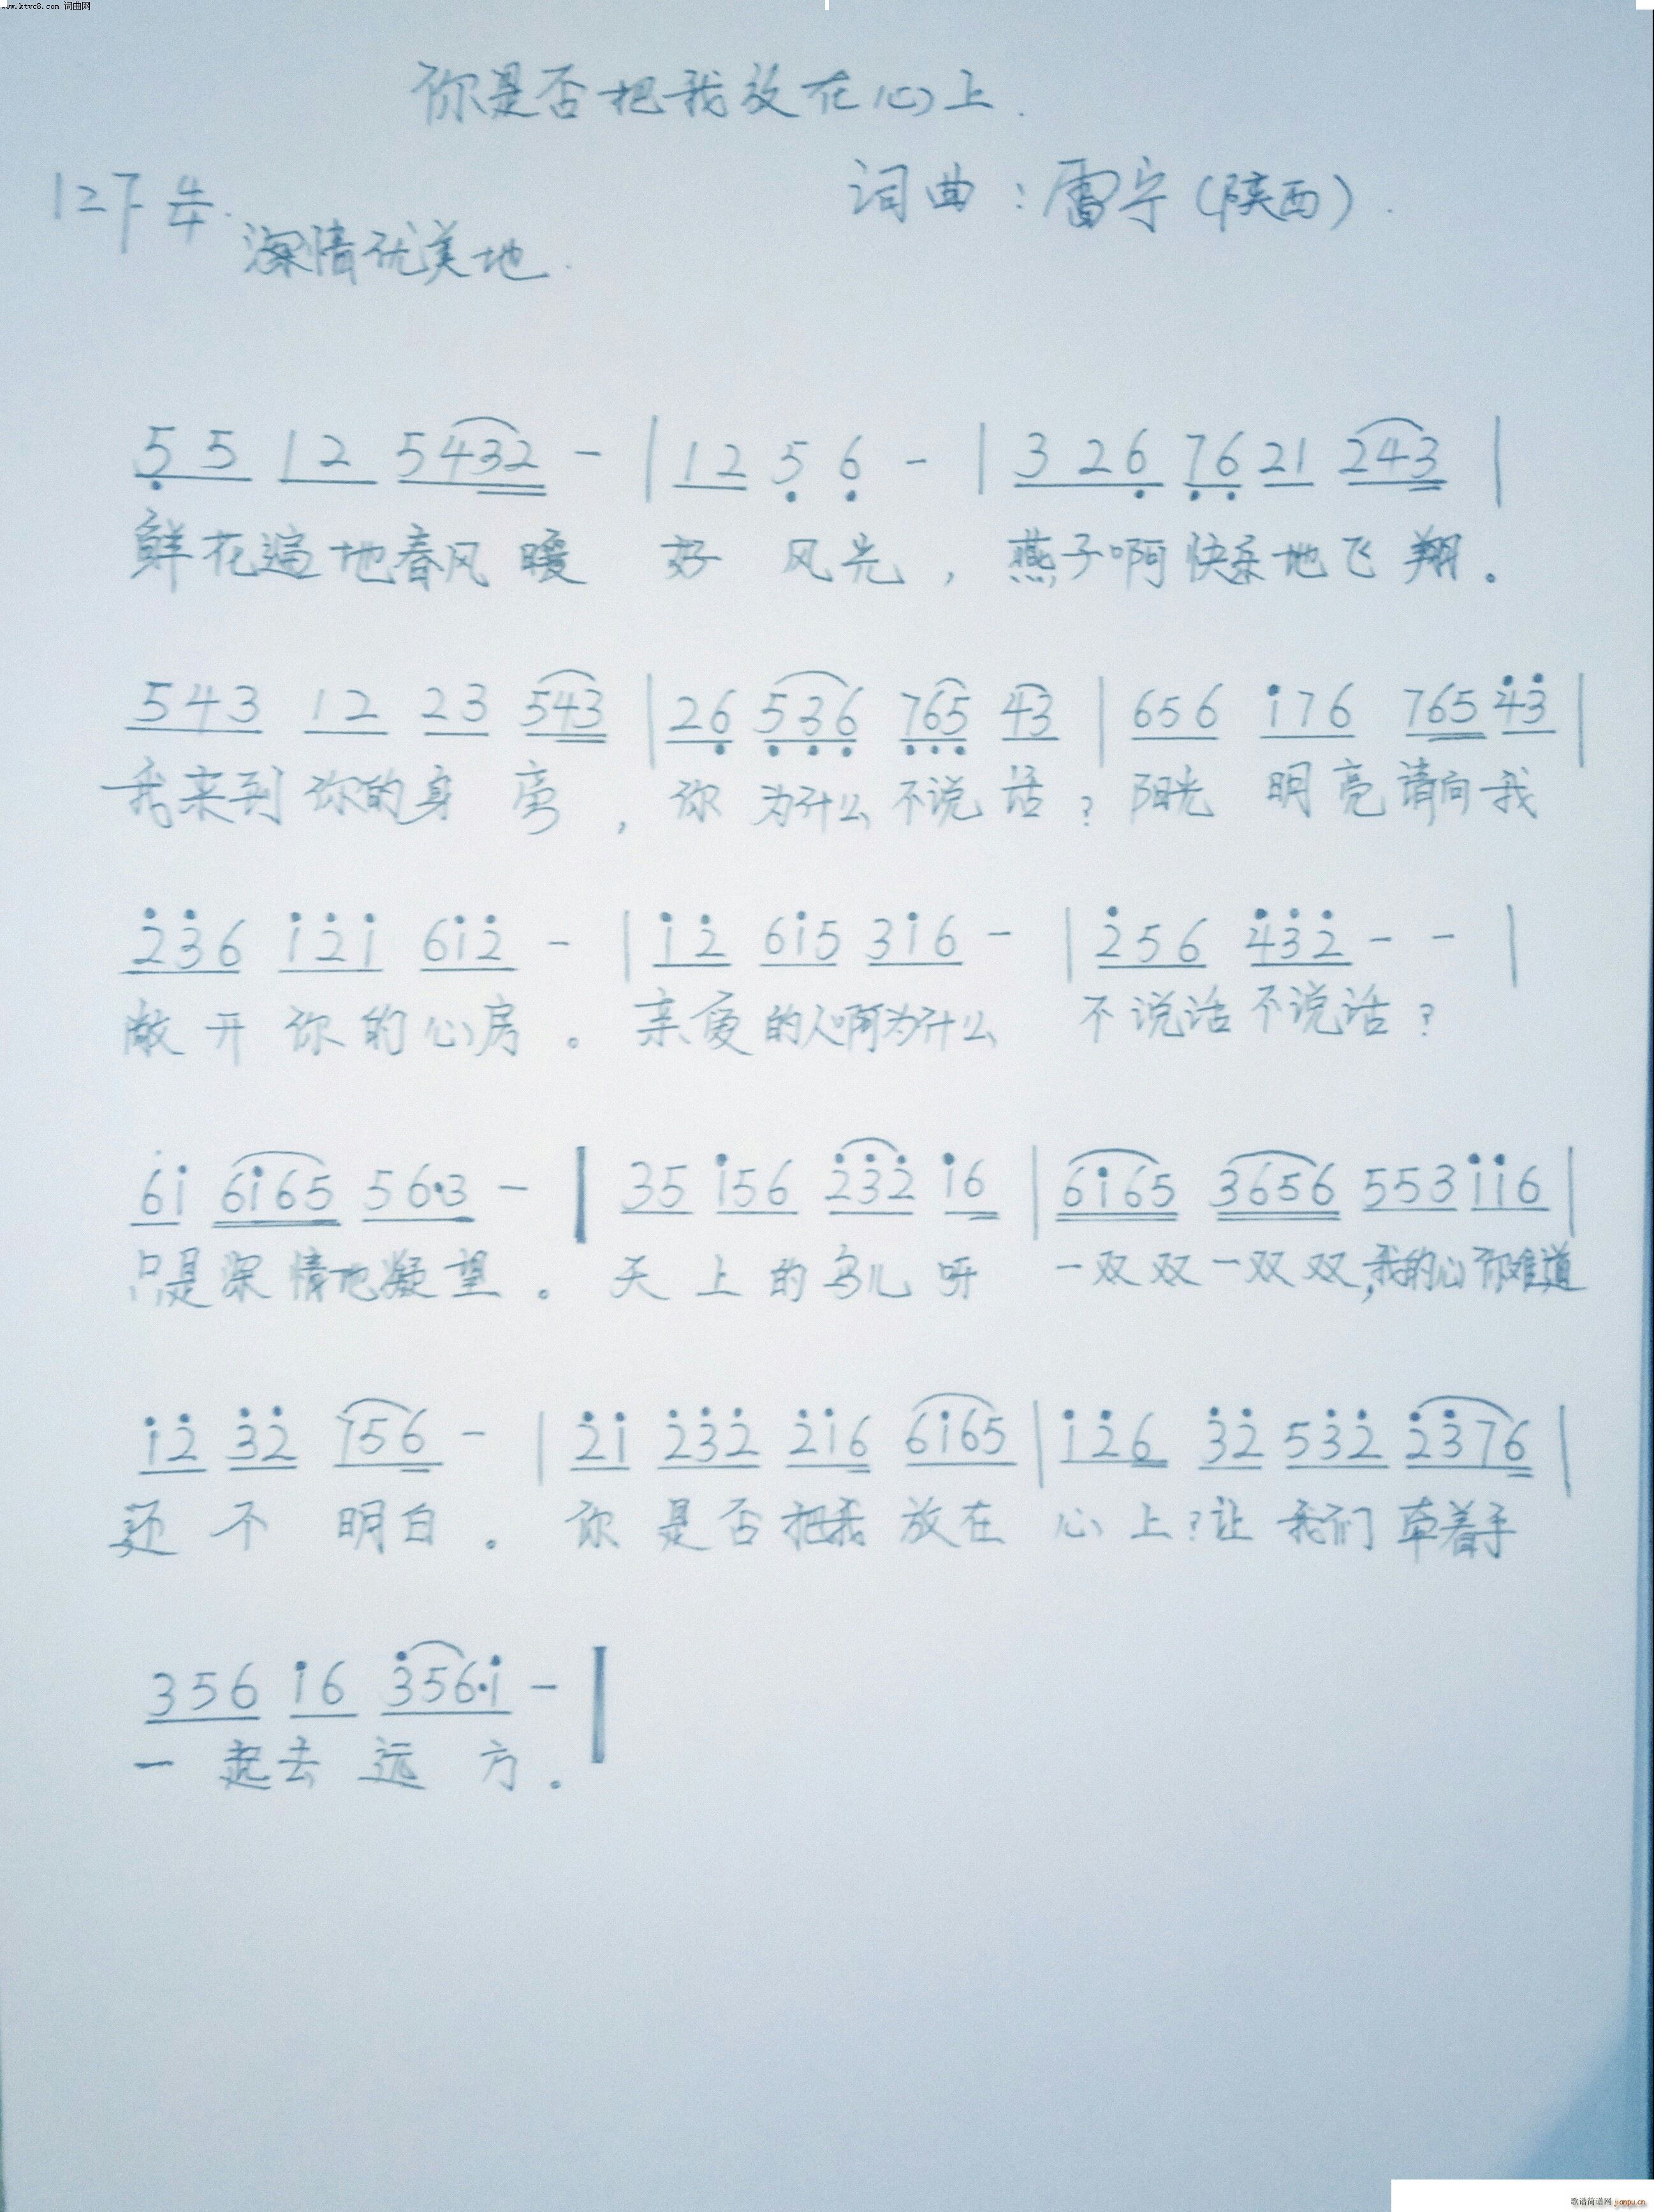 www.ktvc8.com 词曲网
你是否把我放在心上.
词曲:雷宁(陕西).
1=F 4/4.
深情优美地.
5 5 12 5432 - | 12 5 6 - | 3 26 76 21 243 |
鲜花遍地春风暖 好 风光,燕子啊快乐地飞翔。
543 12 23 543 | 26 536 765 43 | 656 i76 765 43 |
我来到你的身旁,你为什么不说话?阳光 明亮请向我
236 i2i 6i2 - | i2 6i5 3i6 - | 256 432 - - |
敞开你的心房。亲爱的人啊为什么 不说话不说话?
6i 6i65 56·3 - | 35 i56 232 i6 | 6i65 3656 553 ii6 |
只是深情地凝望。天上的鸟儿呀 一双双一双双,我的心你难道
i2 32 756 - | 2i 232 2i6 6i65 | i26 32 532 2376 |
还不明白。你是否把我放在心上?让我们牵着手
356 i6 356·i - |
一起去远方。
歌谱简谱网 jianpu.cn